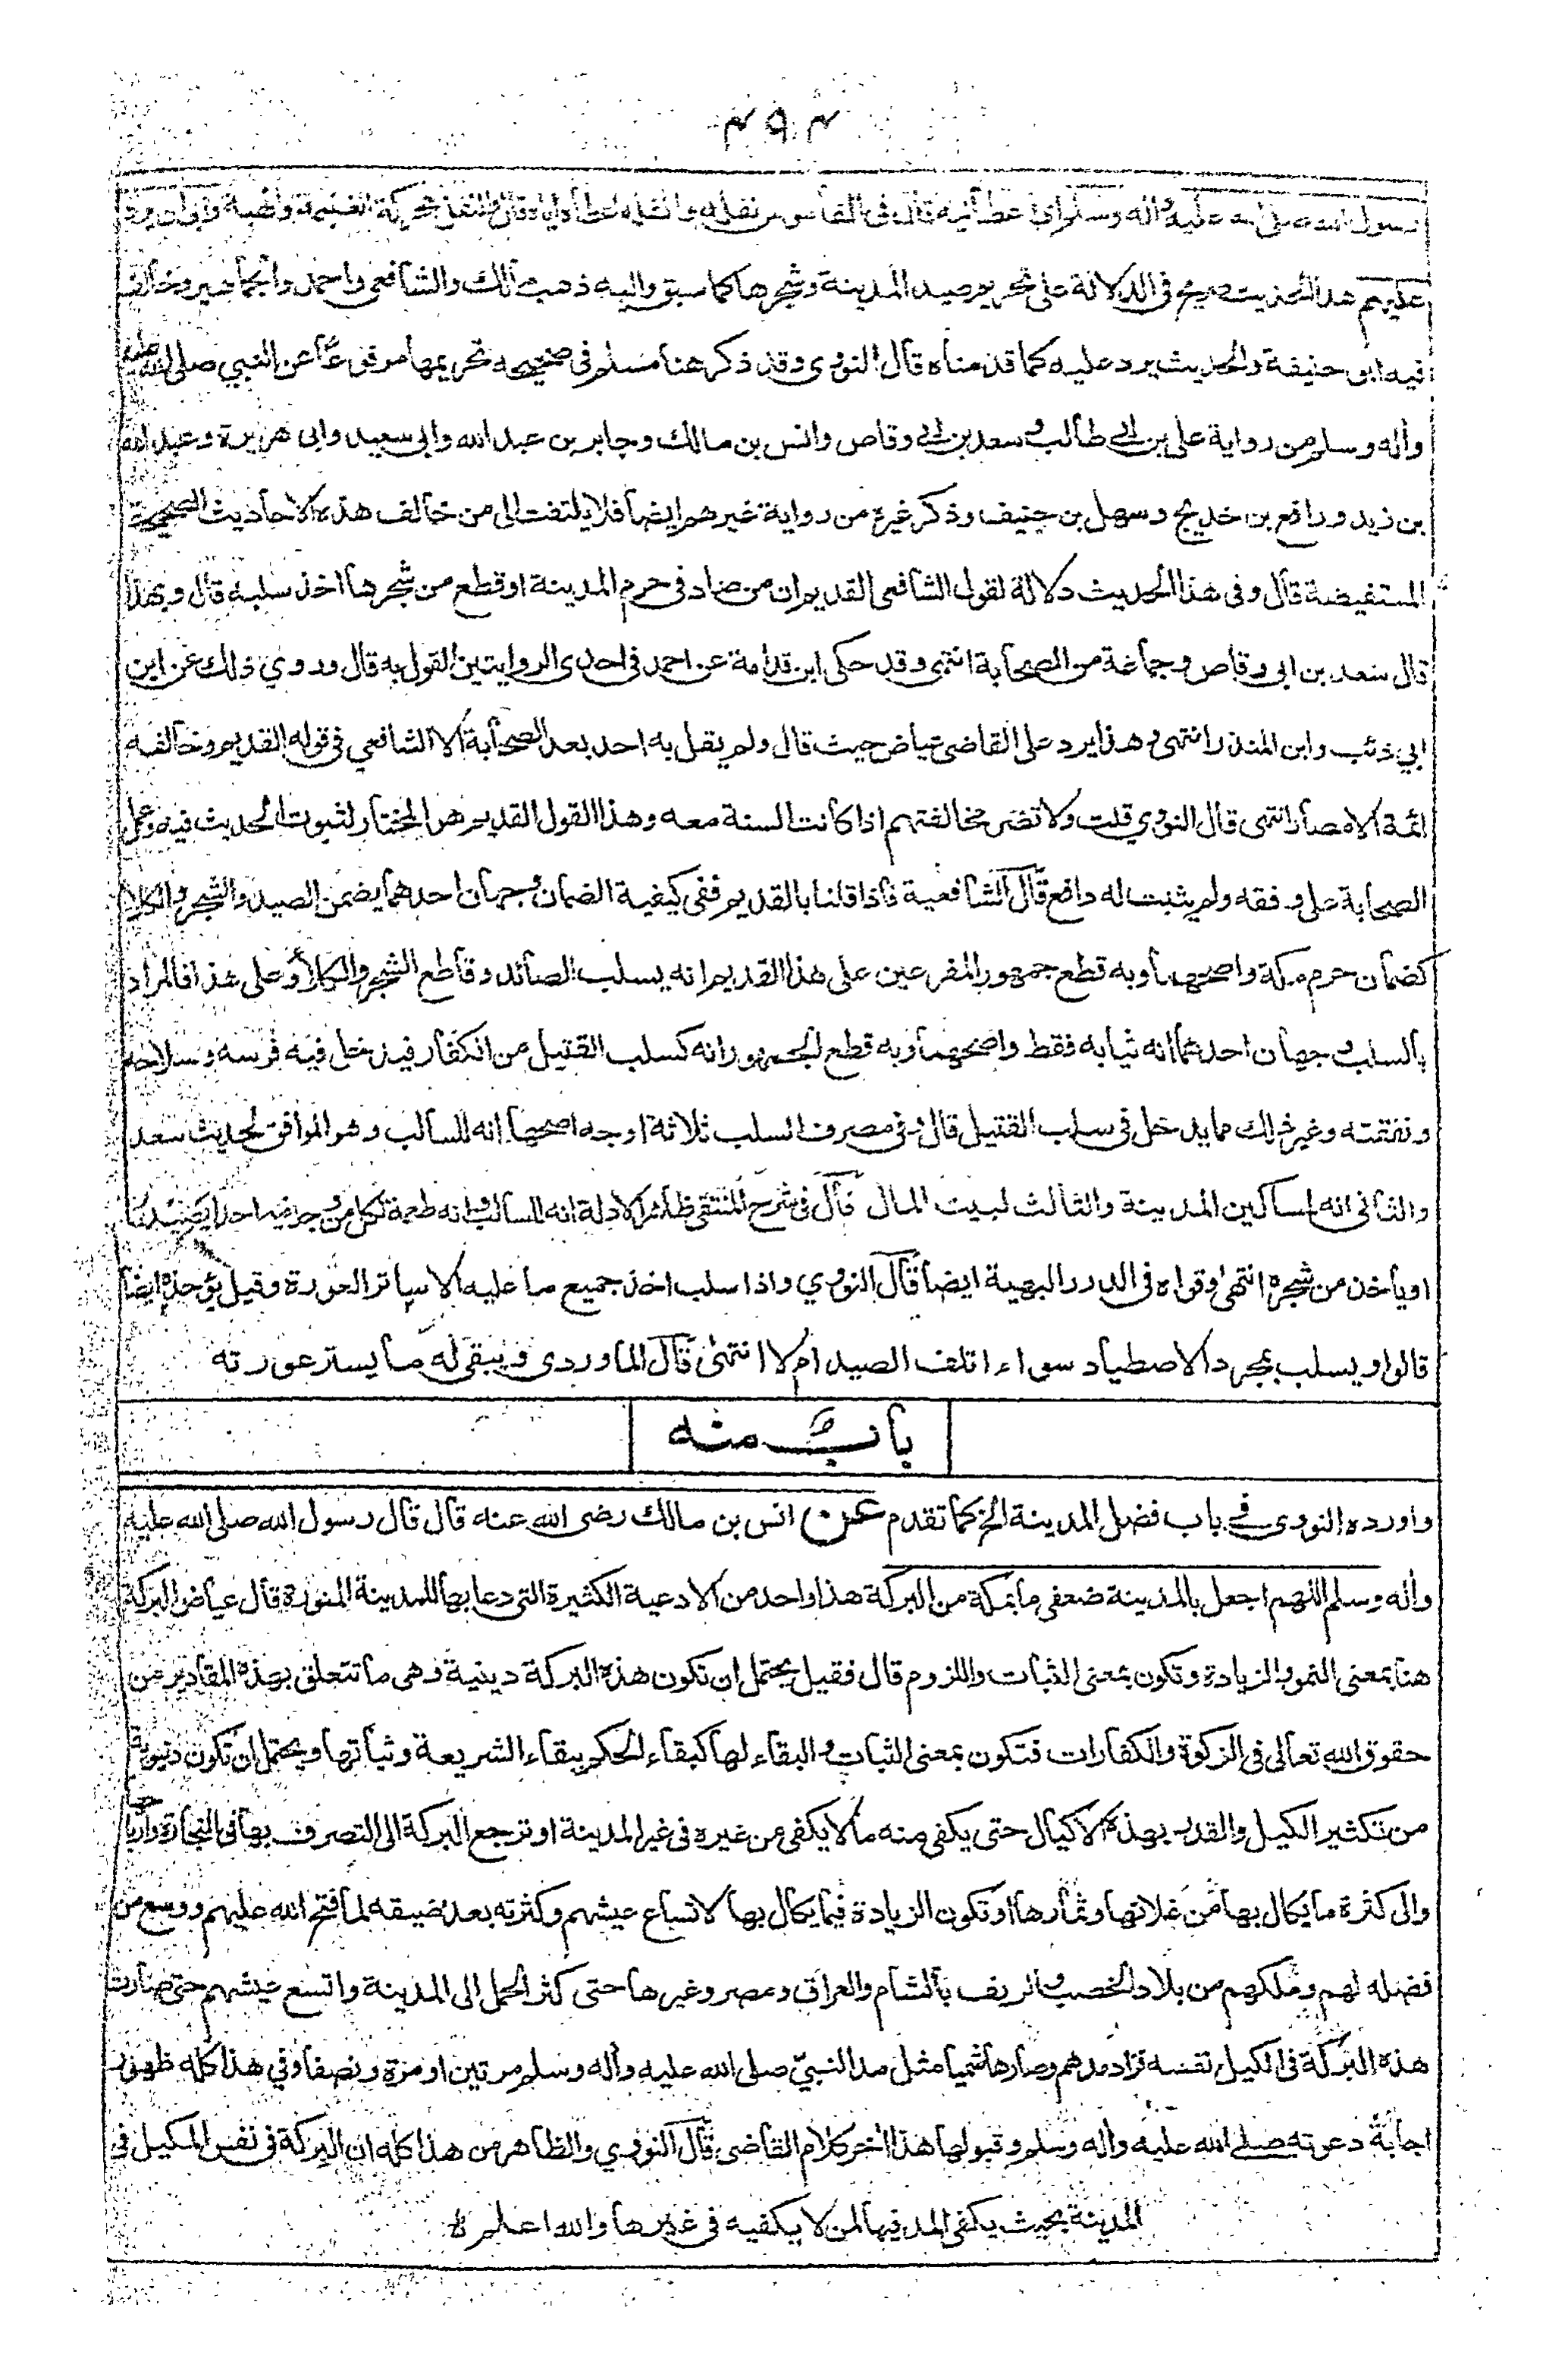 ٤٩٤
رسول الله صلى الله عليه وأله وسلم اي عطانيه قال في القاموس نفله وانفله اعطاه اياه وقال النفل محركة الغنيمة والهبة وابى ان يرد
عليهم هذا الحديث صريح في الدلالة على تحريم صيد المدينة وشجرها كما سبق واليه ذهب مالك والشافعي واحمد والجماهير وخالف
فيه ابو حنيفة والحديث يرد عليه كما قدمناه قال النووي وقد ذكر هنا مسلم في صحيحه تحريمها مرفوعًا عن النبي صلى الله عليه
وأله وسلم من رواية علي بن ابي طالب وسعد بن ابي وقاص وانس بن مالك وجابر بن عبد الله وابي سعيد وابي هريرة وعبد الله
بن زيد ورافع بن خديج وسهل بن حنيف وذكر غيره من رواية غيرهم ايضا فلا يلتفت الى من خالف هذه الاحاديث الصحيحة
المستفيضة قال وفي هذا الحديث دلالة لقول الشافعي القديم ان من صاد في حرم المدينة او قطع من شجرها اخذ سلبه قال وبهذا
قال سعد بن ابي وقاص وجماعة من الصحابة انتهى وقد حكى ابن قدامة عن احمد في احدى الروايتين القول به قال وروي ذلك عن ابن
ابي ذئب وابن المنذر انتهى وهذا يرد على القاضي عياض حيث قال ولم يقل به احد بعد الصحابة الا الشافعي في قوله القديم وخالفه
ائمة الامصار انتهى قال النووي قلت ولا تضر مخالفتهم اذا كانت السنة معه وهذا القول القديم هو المختار لثبوت الحديث فيه وعمل
الصحابة على وفقه ولم يثبت له دافع قال الشافعية فاذا قلنا بالقديم ففي كيفية الضمان وجهان احدهما يضمن الصيد والشجر والكلأ
كضمان حرم مكة واصحهما وبه قطع جمهور المفرعين على هذا القديم انه يسلب الصائد وقاطع الشجر والكلأ وعلى هذا فالمراد
بالسلب وجهان احدهما انه ثيابه فقط واصحهما وبه قطع الجمهور انه كسلب القتيل من الكفار فيدخل فيه فرسه وسلاحه
ونفقته وغير ذلك مما يدخل في سلب القتيل قال وفي مصرف السلب ثلاثة اوجه اصحها انه للسالب وهو الموافق لحديث سعد
والثاني انه لمساكين المدينة والثالث لبيت المال قال في شرح المنتقى ظاهر الادلة انه للسالب وانه طعمة لكل من وجد فيه احدا يصيد
او يأخذ من شجره انتهى وقواه في الدرر البهية ايضا قال النووي واذا سلب اخذ جميع ما عليه الا ساتر العورة وقيل يؤخذ ايضا
قالوا ويسلب بمجرد الاصطياد سواء اتلف الصيد ام لا انتهى قال الماوردي ويبقى له ما يستر عورته
باب منه
واورده النووي في باب فضل المدينة الخ كما تقدم عن انس بن مالك رضى الله عنه قال قال رسول الله صلى الله عليه
وأله وسلم اللهم اجعل بالمدينة ضعفي ما بمكة من البركة هذا واحد من الادعية الكثيرة التي دعا بها للمدينة المنورة قال عياض البركة
هنا بمعنى النمو والزيادة وتكون بمعنى الثبات واللزوم قال فقيل يحتمل ان تكون هذه البركة دينية وهي ما تتعلق بهذه المقادير من
حقوق الله تعالى في الزكوة والكفارات فتكون بمعنى الثبات والبقاء لها كبقاء الحكم ببقاء الشريعة وثباتها ويحتمل ان تكون دنيوية
من تكثير الكيل والقدر بهذه الاكيال حتى يكفي منه ما لا يكفي من غيره في غير المدينة او ترجع البركة الى التصرف بها في التجارة وارباحها
والى كثرة ما يكال بها من غلاتها وثمارها او تكون الزيادة فيما يكال بها لاتساع عيشهم وكثرته بعد ضيقه لما فتح الله عليهم ووسع من
فضله لهم وملكهم من بلاد الخصب والريف بالشام والعراق ومصر وغيرها حتى كثر الحمل الى المدينة واتسع عيشهم حتى صارت
هذه البركة في الكيل نفسه فزاد مدهم وصار هاشميا مثل مد النبيّ صلى الله عليه وأله وسلم مرتين او مرة ونصفا وفي هذا كله ظهور
اجابة دعوته صلى الله عليه وأله وسلم وقبولها هذا اخر كلام القاضي قال النووي والظاهر من هذا كله ان البركة في نفس المكيل في
المدينة بحيث يكفي المد فيها لمن لا يكفيه في غيرها والله اعلم